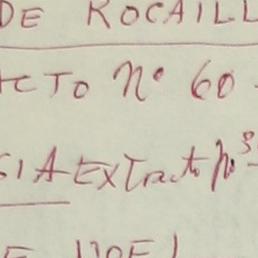 DE ROCAILL
CTO Nº 60
SIA Extracto nº 3
E NOEL